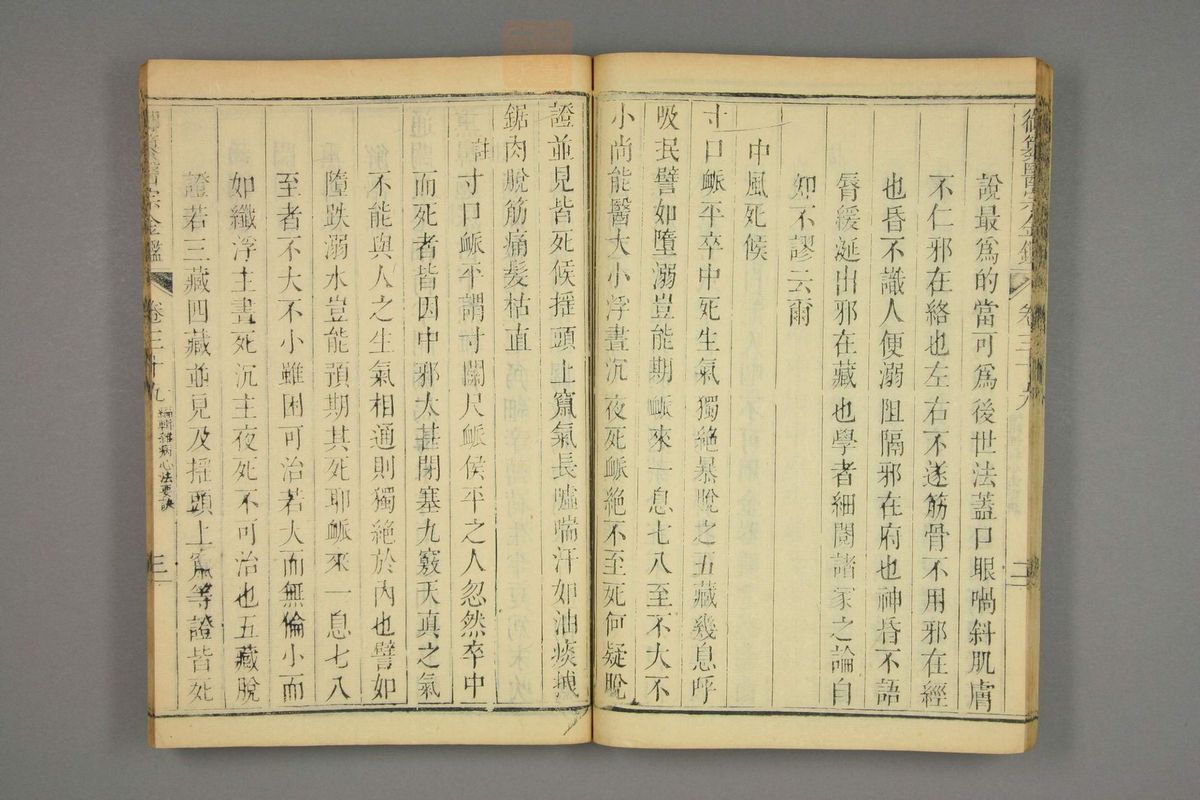 御纂醫宗金鑑 卷三十九 二
說最爲的當可爲後世法蓋口眼喎斜肌膚
不仁邪在絡也左右不遂筋骨不用邪在經
也昏不識人便溺阻隔邪在府也神昏不語
脣緩涎出邪在藏也學者細閱諸家之論自
知不謬云爾
中風死候
寸口脈平卒中死生氣獨絶暴脫之五藏幾息呼
吸泯譬如墮溺豈能期脈來一息七八至不大不
小尚能醫大小浮晝沉夜死脈絶不至死何疑脫
證並見皆死候摇頭上竄氣長噓喘汗如油痰拽
鋸肉脫筋痛髮枯直
註寸口脈平謂寸關尺脈俟平之人忽然卒中
而死者皆因中邪太甚閉塞九竅天真之氣
不能與人之生氣相通則獨絶於內也譬如
墮跌溺水豈能預期其死耶脈來一息七八
至者不大不小雖困可治若大而無倫小而
如纖浮主晝死沉主夜死不可治也五藏脫
證若三藏四藏並見及摇頭上竄等證皆死
御纂醫宗金鑑 卷三十九 編輯雜病心法要訣 三